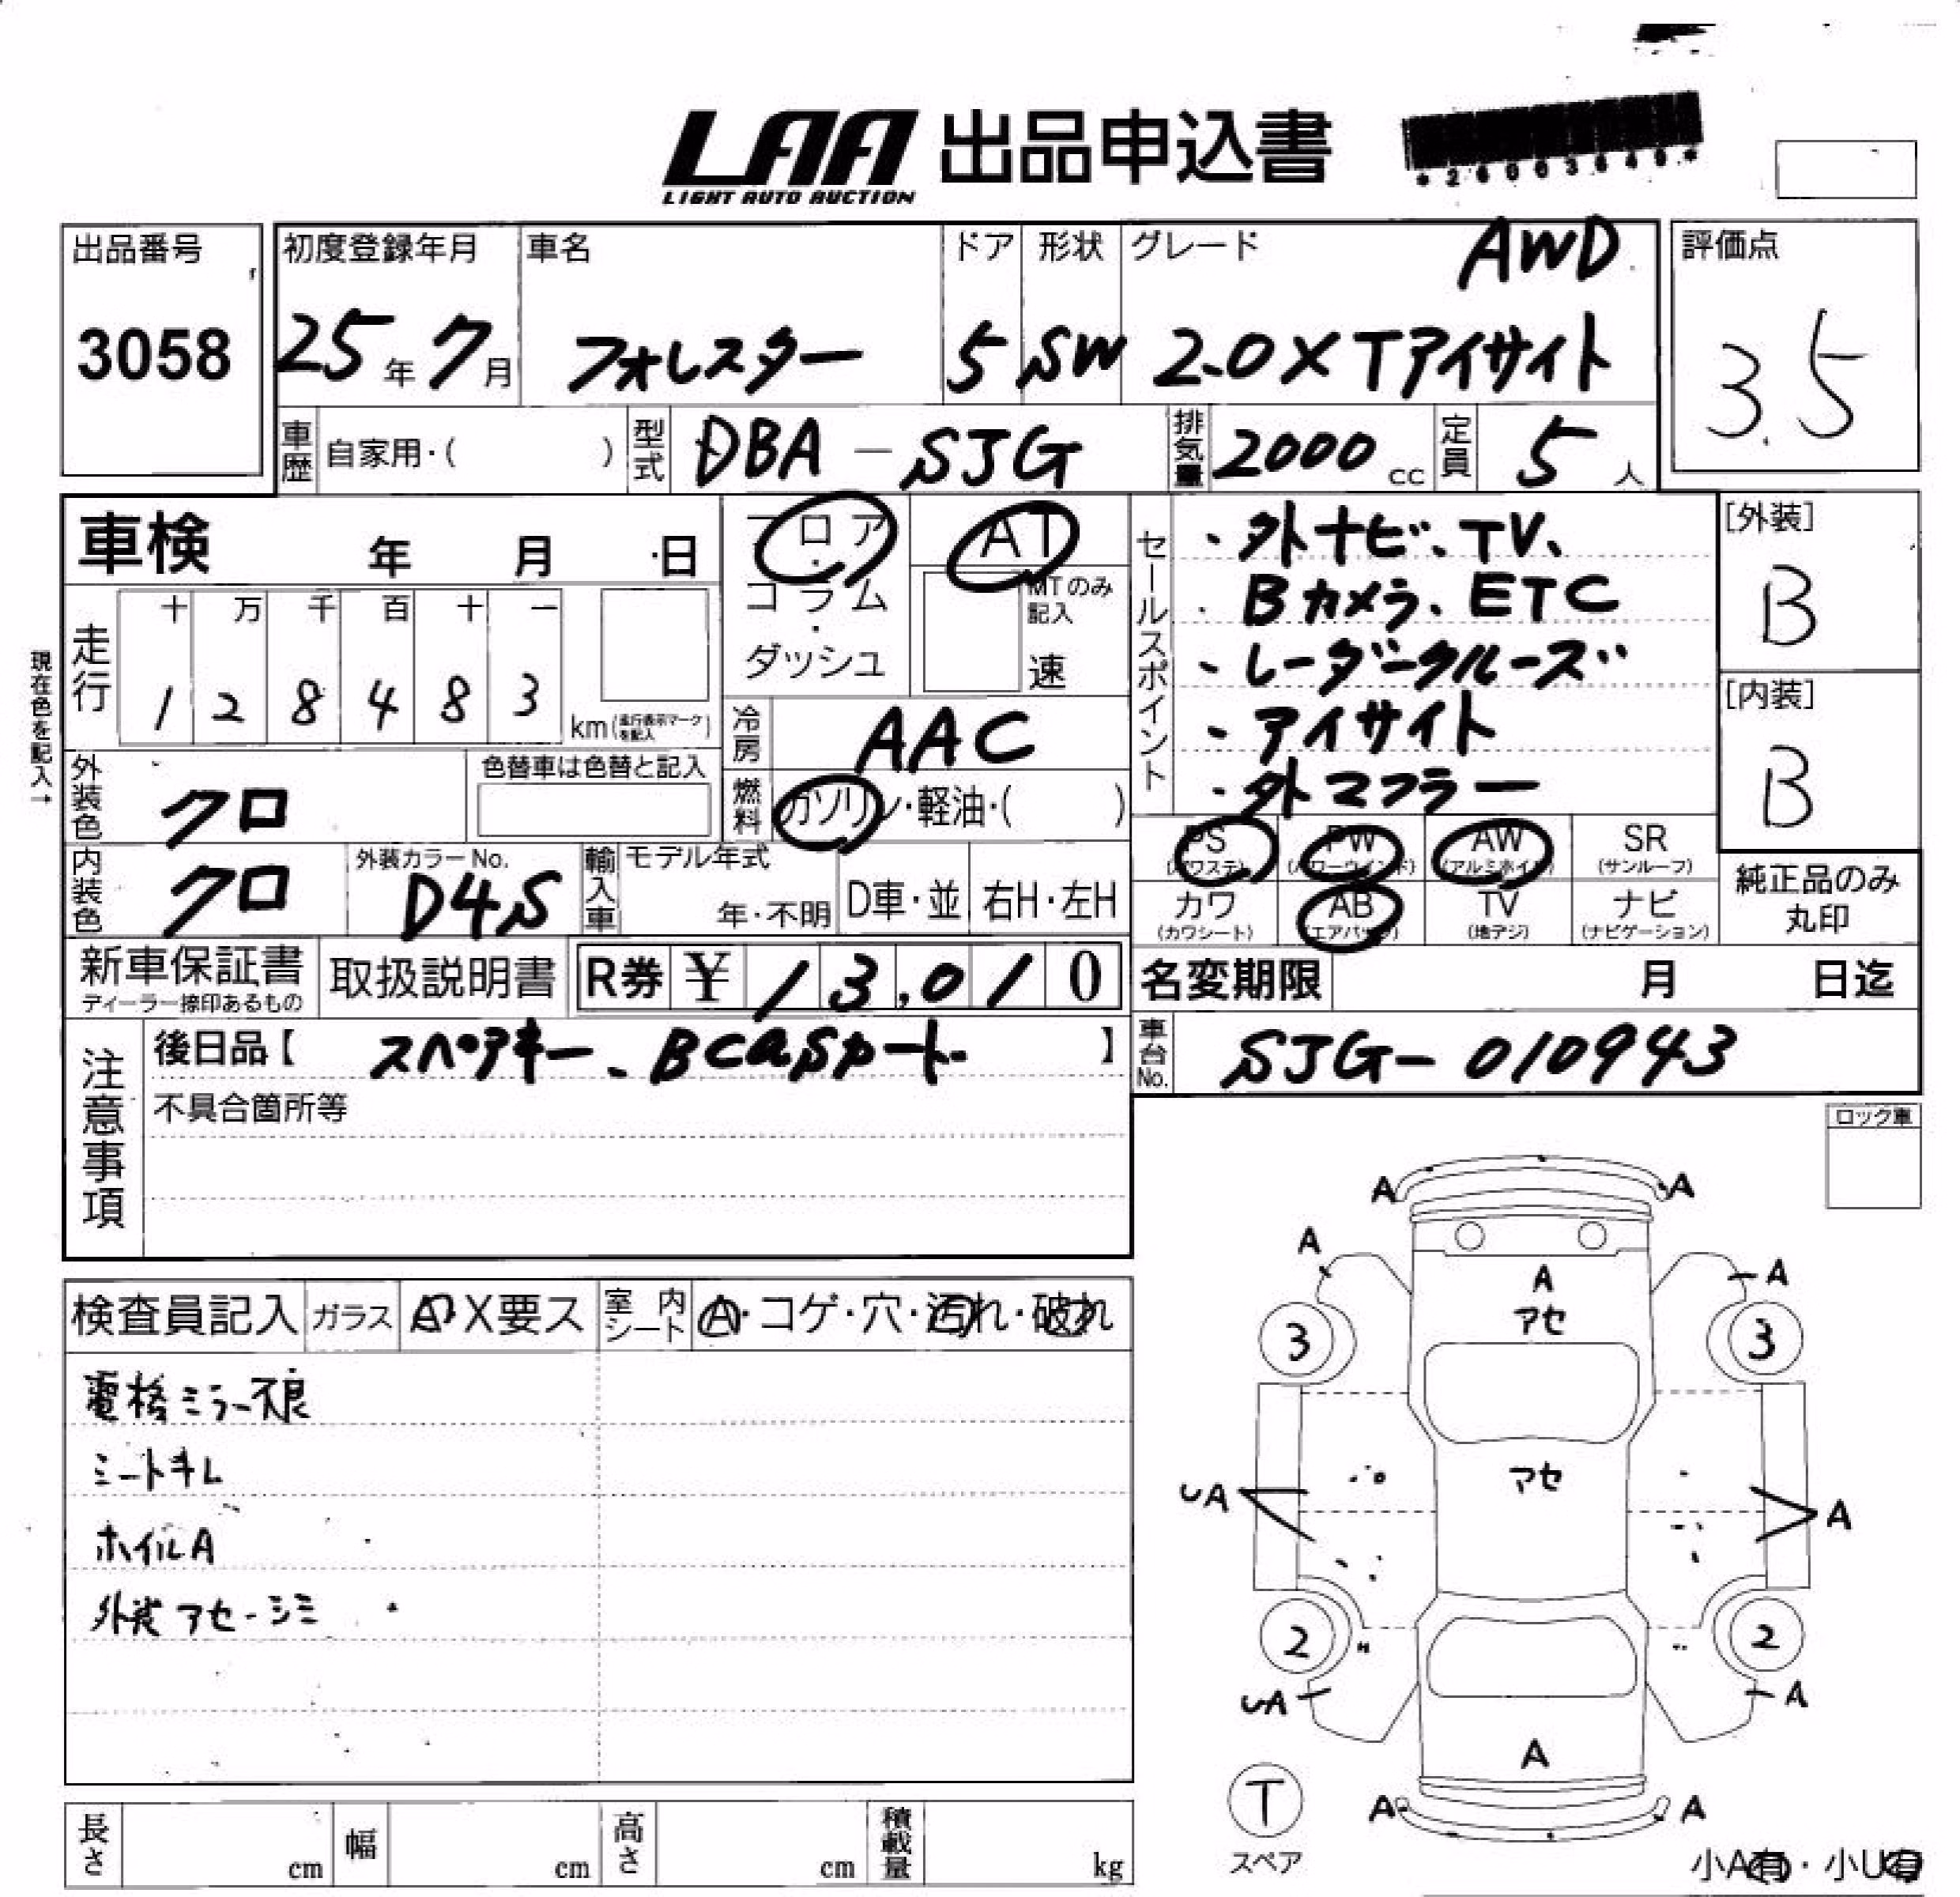 LAA 出品申込書
LIGHT AUTO AUCTION
*26003640*
出品番号
3058
初度登録年月
25年7月
車名
フォレスター
ドア
5
形状
SW
グレード
AWD
2.0XTアイサイト
評価点
3.5
車歴 自家用・( )
型式 DBA-SJG
排気量 2000cc
定員 5人
車検 年 月 日
フロア・コラム・ダッシュ
AT
MTのみ記入
速
セールスポイント
・外ナビ、TV、
・Bカメラ、ETC
・レーダークルーズ
・アイサイト
・外マフラー
[外装]
B
[内装]
B
現在色を記入→
走行
十 万 千 百 十 一
1 2 8 4 8 3
km(走行表示マークを記入)
冷房 AAC
外装色 クロ
色替車は色替と記入
燃料 ガソリン・軽油・( )
PS (パワステ)
PW (パワーウインド)
AW (アルミホイル)
SR (サンルーフ)
カワ (カワシート)
AB (エアバッグ)
TV (地デジ)
ナビ (ナビゲーション)
純正品のみ
丸印
内装色 クロ
外装カラーNo.
D4S
輸入車
モデル年式
年・不明
D車・並
右H・左H
新車保証書
ディーラー捺印あるもの
取扱説明書
R券 ¥ 13,010
名変期限 月 日迄
注意事項
後日品【 スペアキー、BCaSカード 】
車台No. SJG-010943
不具合箇所等
ロック車
検査員記入 ガラス A・X要ス
室内シート A・コゲ・穴・汚れ・破れ
電格ミラー不良
シートキレ
ホイルA
外装アセ-シミ
A A
A A
A
アセ
3 3
アセ
UA A
2 2
UA A
A
T
スペア
A A
小A有・小U有
長さ cm
幅 cm
高さ cm
積載量 kg